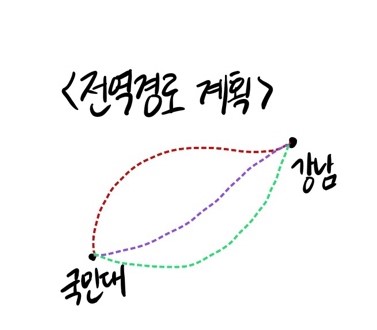 <전역경로 계획>
강남
국민대